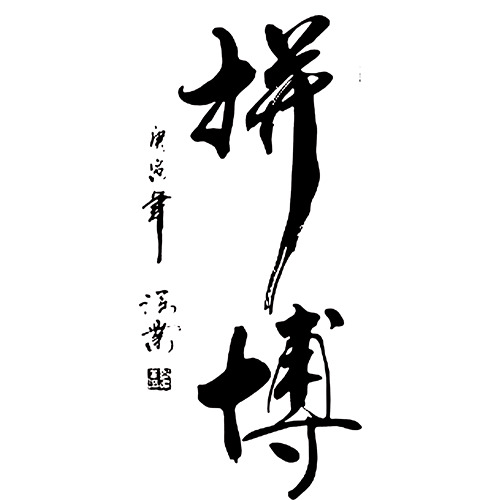 拼搏
庚寅年